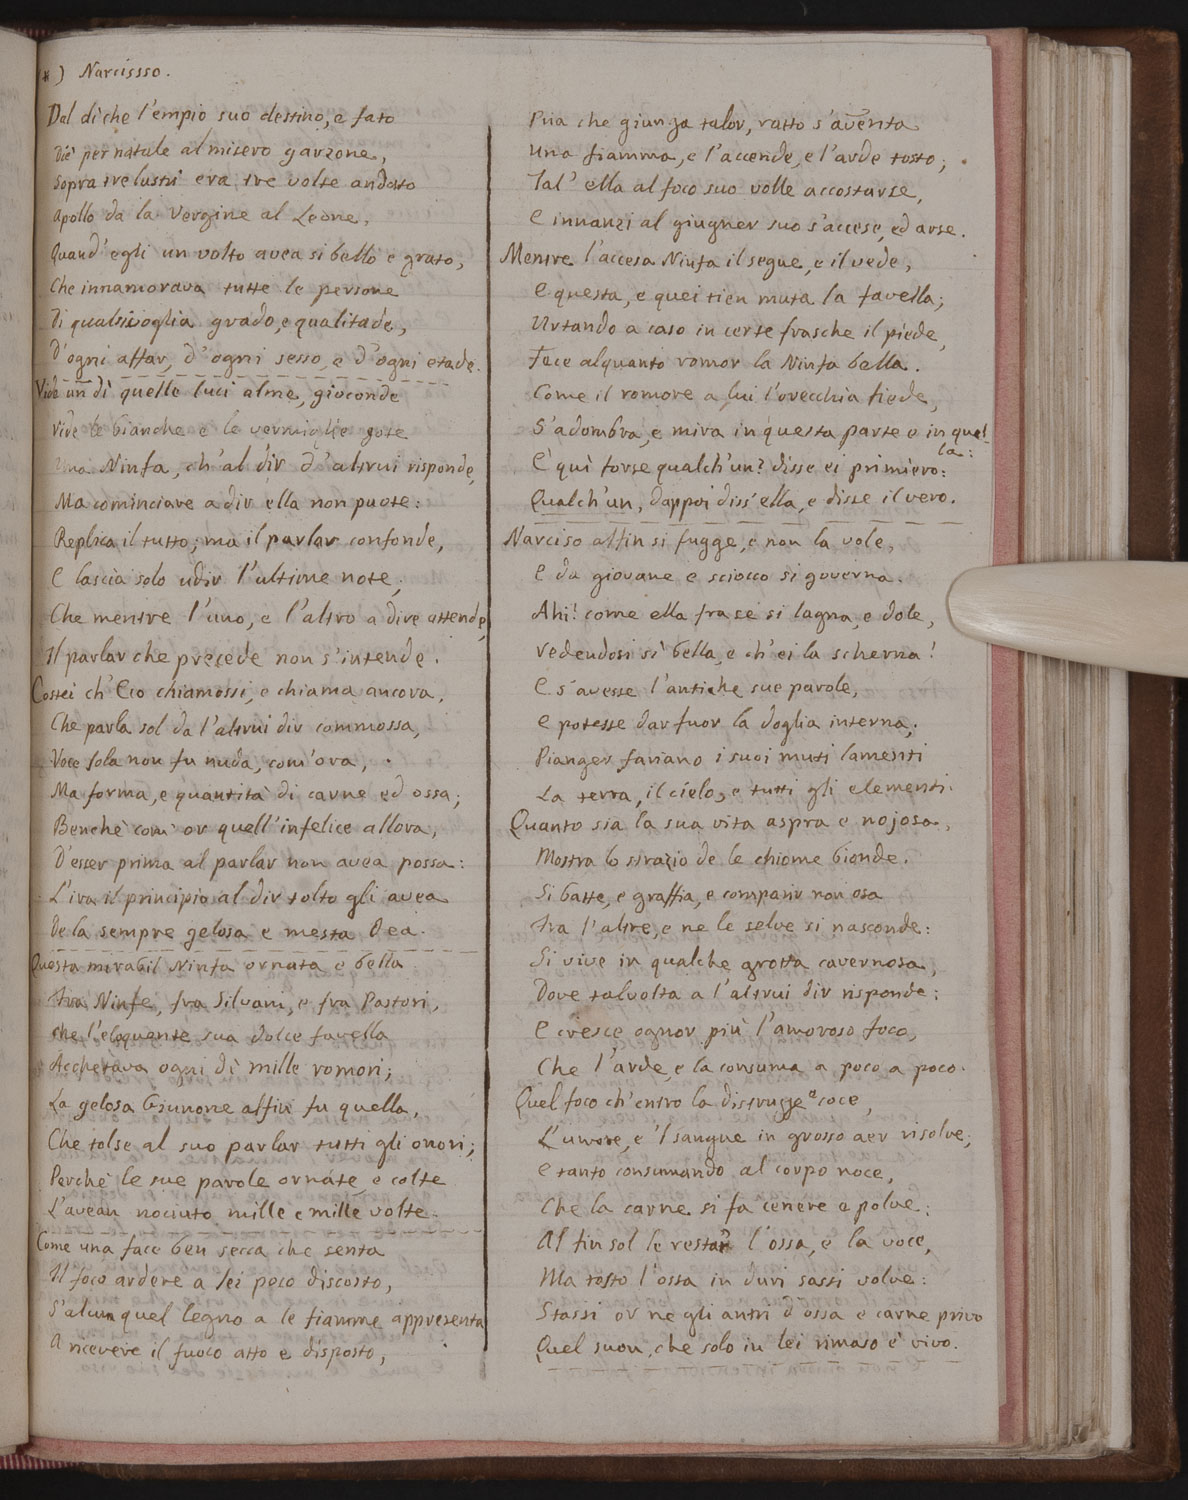 (*) Narcissso.
Dal dì che l'empio suo destino, e fato
Diè per natale al misero garzone,
Sopra tre lustri era tre volte andato
Apollo da la Vergine al Leone,
Quand'egli un volto avea sì bello e grato,
Che innamorava tutte le persone
Di qualsivoglia grado, e qualitade,
D'ogni affar, d'ogni sesso, e d'ogni etade.
Vide un dì quelle luci alme, gioconde
Vide le bianche e le vermiglie gote
Una Ninfa, ch'al dir d'altrui risponde,
Ma cominciare a dir ella non puote:
Replica il tutto; ma il parlar confonde,
E lascia solo udir l'ultime note;
Che mentre l'uno, e l'altro a dire attende,
Il parlar che precede non s'intende.
Costei ch'Eco chiamossi, e chiama ancora,
Che parla sol da l'altrui dir commossa,
Voce sola non fu nuda, com'ora,
Ma forma, e quantità di carne ed ossa;
Benchè com' or quell'infelice allora,
D'esser prima al parlar non avea possa:
L'ira il principio al dir tolto gli avea
De la sempre gelosa e mesta Dea.
Questa mirabil Ninfa ornata e bella
Fra Ninfe, fra Silvani, e fra Pastori,
Che l'eloquente sua dolce favella
Acchetava ogni dì mille romori;
La gelosa Giunone alfin fu quella,
Che tolse al suo parlar tutti gli onori;
Perchè le sue parole ornate, e colte
L'avean nociuto mille e mille volte.
Come una face ben secca che senta
Il foco ardere a lei poco discosto,
S'alcun quel legno a le fiamme appresenta
A ricevere il fuoco atto e disposto,
Pria che giunga talor, ratto s'aventa
Una fiamma, e l'accende, e l'arde tosto;
Tal' ella al foco suo volle accostarse,
E innanzi al giugner suo s'accese, ed arse.
Mentre l'accesa Ninfa il segue, e il vede,
E questa, e quei tien muta la favella;
Urtando a caso in certe frasche il piede,
Fece alquanto romor la Ninfa bella.
Come il romore a lui l'orecchia fiede,
S'adombra, e mira in questa parte e in quel-
la:
E quì forse qualch'un? disse ei primiero:
Qualch'un, dappoi diss'ella, e disse il vero.
Narciso alfin si fugge, e non la vole,
E da giovane e sciocco si governa.
Ahi! come ella fra se si lagna, e dole,
Vedendosi sì bella, e ch'ei la scherna!
E s'avesse l'antiche sue parole,
E potesse dar fuor la doglia interna;
Pianger fariano i suoi muti lamenti
La terra, il cielo, e tutti gli elementi.
Quanto sia la sua vita aspra e nojosa,
Mostra lo strazio de le chiome bionde.
Si batte, e graffia, e comparir non osa
Fra l'altre, e ne le selve si nasconde:
Si vive in qualche grotta cavernosa,
Dove talvolta a l'altrui dir risponde:
E cresce ognor più l'amoroso foco,
Che l'arde, e la consuma a poco a poco.
Quel foco ch'entro la distrugge e coce,
L'umore, e 'l sangue in grosso aer risolve;
E tanto consumando al corpo noce,
Che la carne si fa cenere e polve:
Al fin sol le restar l'ossa, e la voce,
Ma tosto l'ossa in duri sassi volve:
Stassi or ne gli antri d'ossa e carne privo
Quel suon, che solo in lei rimaso è vivo.